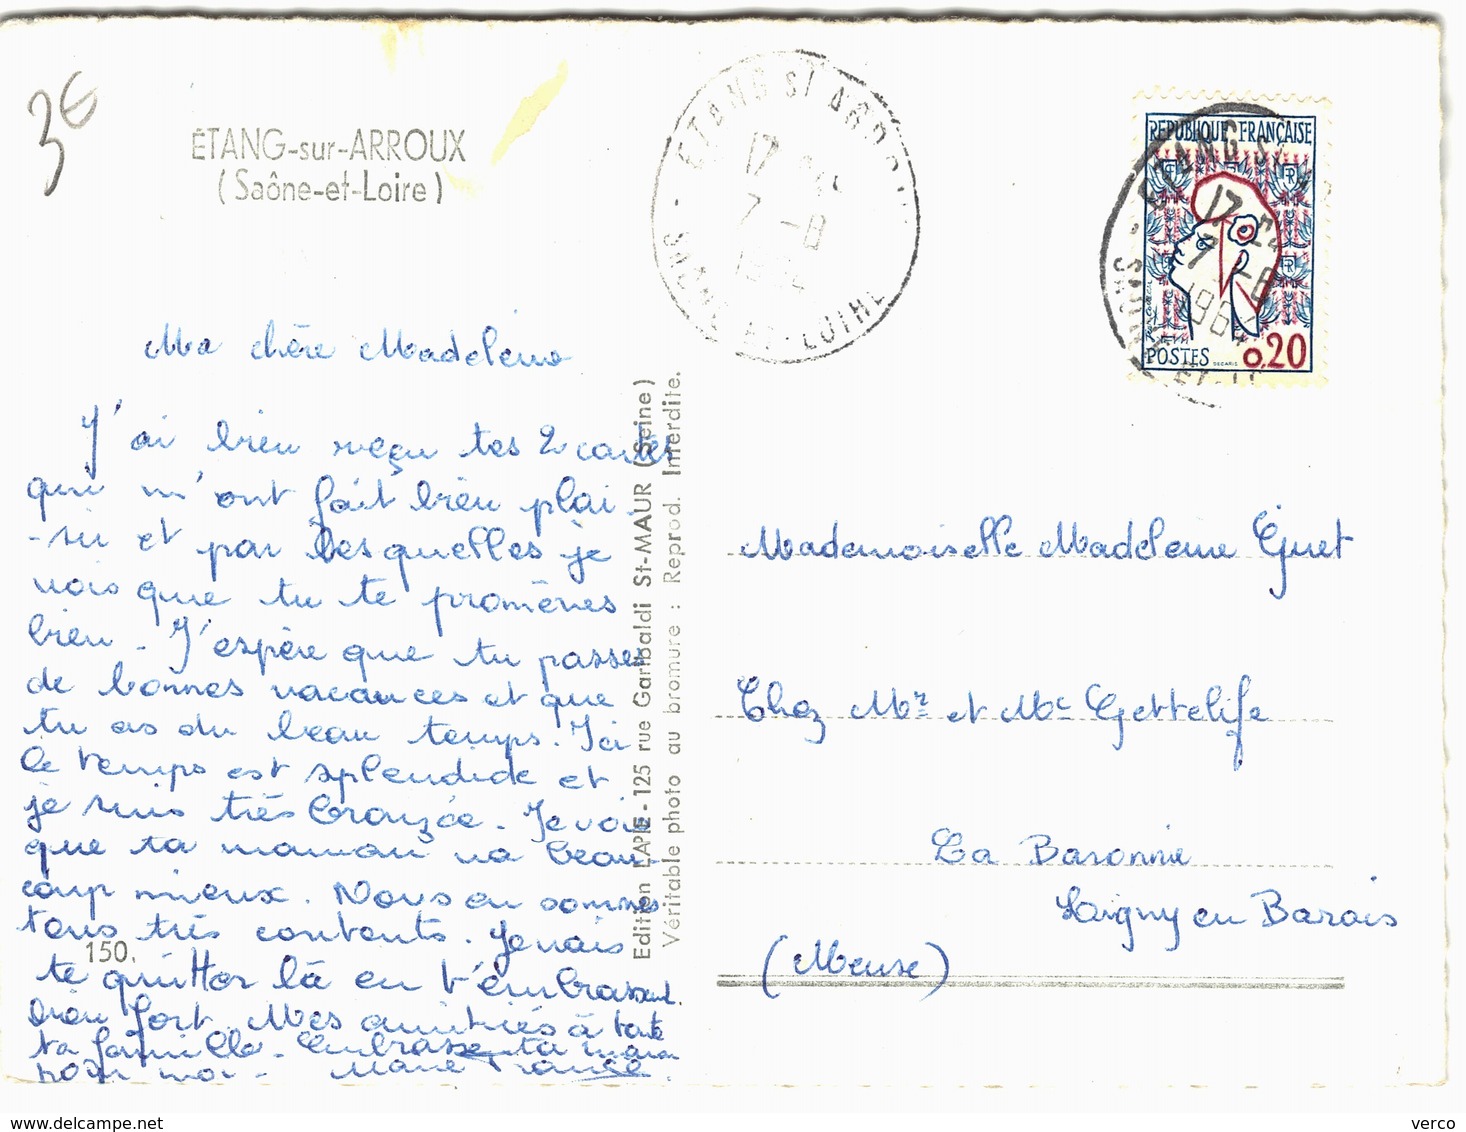 3€
ÉTANG-sur-ARROUX
(Saône-et-Loire)
ETANG S/ ARROUX
17
7 - 8
1964
SAONE-ET-LOIRE
REPUBLIQUE FRANÇAISE
POSTES
0,20
Ma chère Madeleine
J'ai bien reçu tes 2 cartes
qui m'ont fait bien plai-
-sir et par lesquelles je
vois que tu te promènes
bien - J'espère que tu passes
de bonnes vacances et que
tu as du beau temps. Ici
le temps est splendide et
je suis très bronzée. Je vois
que ta maman va beau-
coup mieux. Nous en sommes
tous très contents. Je vais
te quitter là en t'embrassant
bien fort. Mes amitiés à toute
ta famille - Embrasse ta maman
pour moi - Marie France
150.
Edition LAPIE - 125 rue Garibaldi St-MAUR (Seine)
Véritable photo au bromure : Reprod. Interdite.
Mademoiselle Madeleine Guet
Chez Mr et Me Gettelife
La Baronnie
Loigny en Barois
(Meuse)
verco